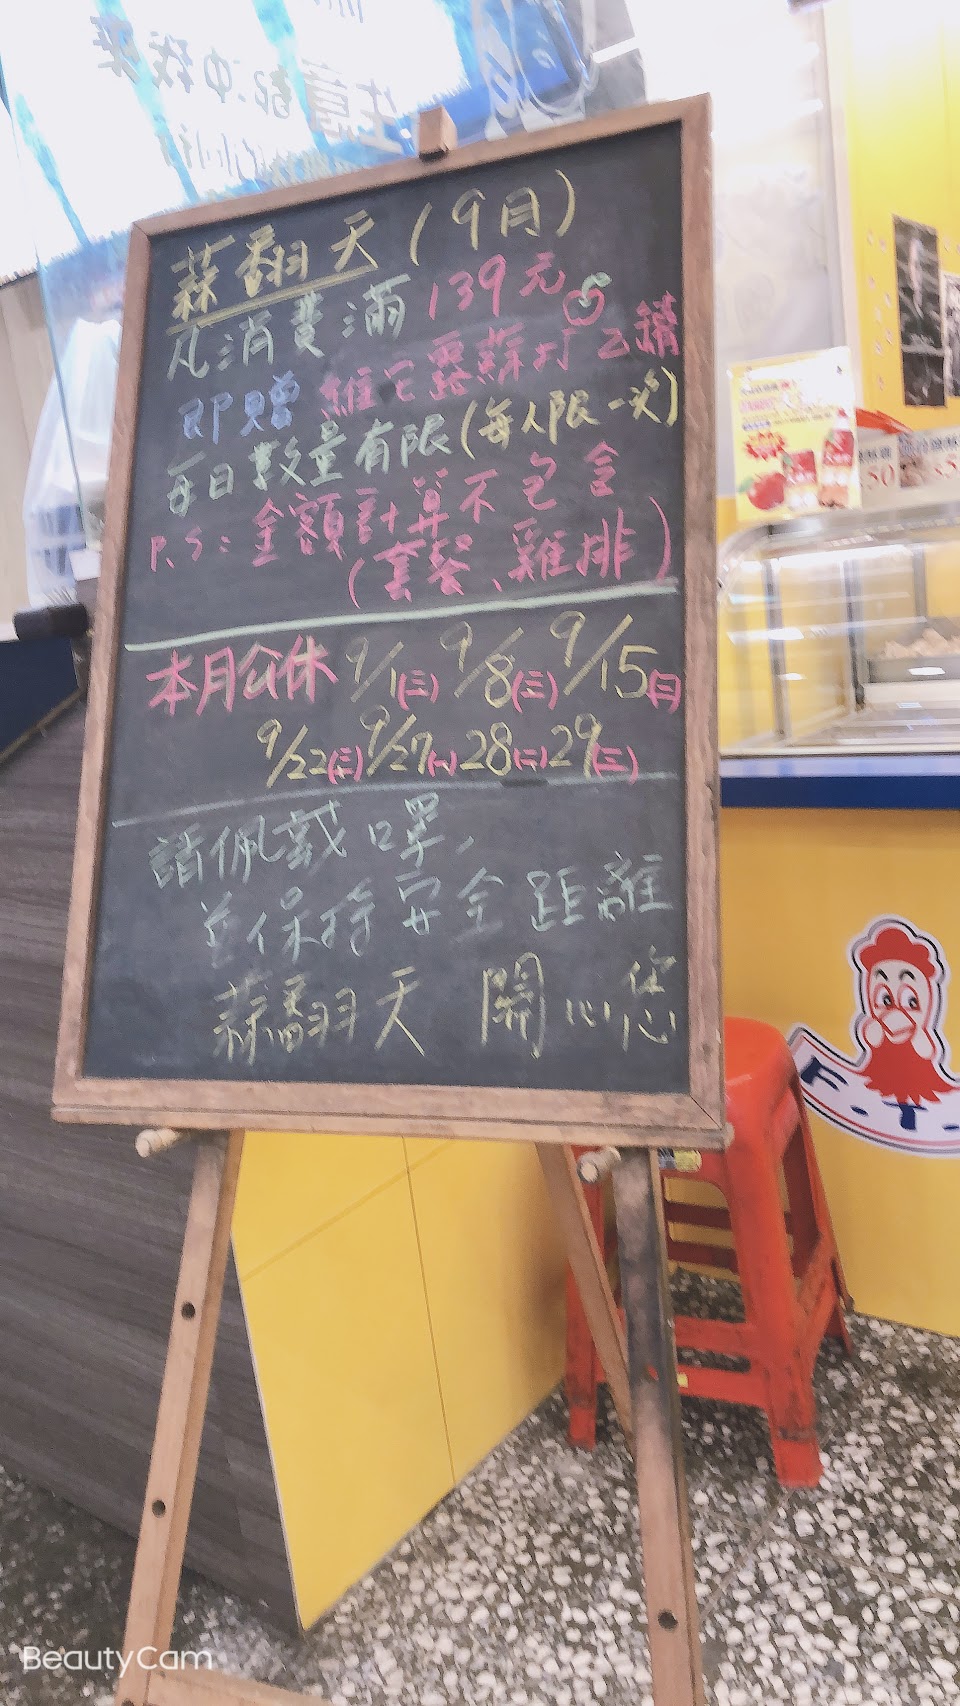 生意都沖我來
蒜翻天(9月)
凡消費滿139元
即贈維它露蘋打乙罐
每日數量有限(每人限一次)
P.S:金額計算不包含
(套餐、雞排)
本月公休 9/1(三) 9/8(三) 9/15(日)
9/22(三) 9/27(一) 28(二) 29(三)
請佩戴口罩,
並保持安全距離
蒜翻天 開心您
50
$5
F.T.
BeautyCam